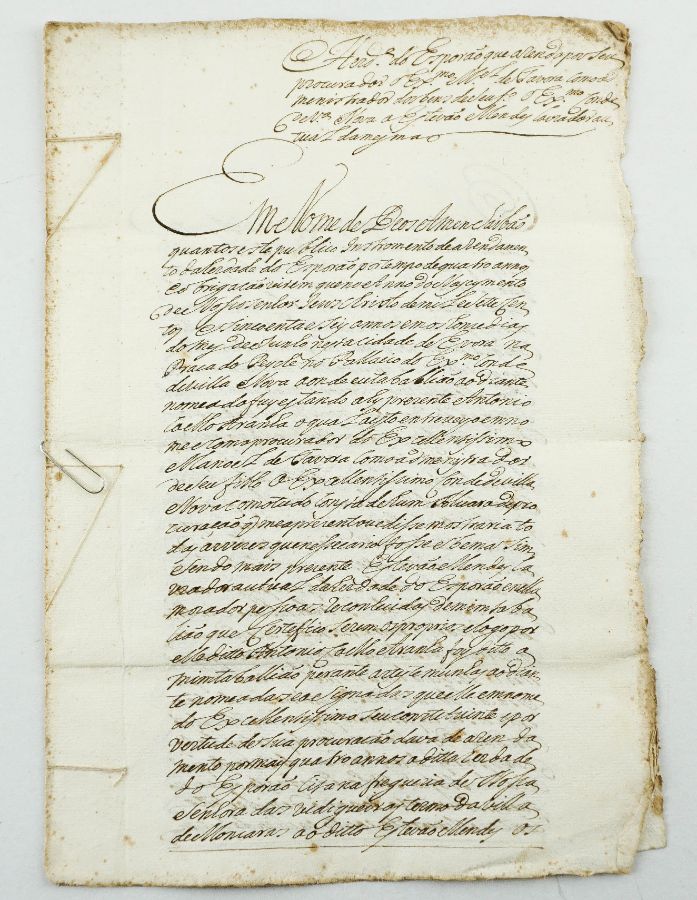 Herd.e do Esporão que arendo por seu
procurador o Ex.mo M.el de Tavora como ad
menistrador dos bens de seu f.o o Ex.mo Conde
de V.a Nova a Estevão Mendes lavrador au
tual da mesma
Em Nome de Deos Amen Saibão
quantos este publico Instromento de arendamen
to da Herdade do Esporão por tempo de quatro annos
e obrigação virem que no Anno do Nascimento
de Nosso senhor Jesus Christo de mil e sete sen
tos e sincoenta e seis annos em os
do mes de Junho nesta cidade de Evora na
Praça do no Pallacio do Ex.mo Conde
de villa Nova aonde eu taballião ao diante
nomeado fuy estando ahy prezente Antonio
Coelho Aranha o qual a isto em
me e como procurador do Excellentissimo
Manoel de Tavora como admenistrador
de seu filho o Excellentissimo Conde de villa
Nova como tudo de hum de pro
curação q me aprezentou e disse mostraria to
das as vezes que nesesario fosse e bem assim
sendo mais prezente Estevão Mendes la
vrador autual da Herdade do Esporão e nella
morador pessoas reconhecidas de mim taba
lião que Certefico serem os proprios e logo por
elle ditto Antonio Coelho Aranha foy dito a
mim taballião perante as testemunhas ao dian
te nomeadas e asignadas que elle em nome
do Excellentissimo seu constetuinte e por
vertude de sua procuração dava de arenda
mento por mais quatro annos a ditta herdade
do Esporão cita na freguezia de Nossa
Senhora das vidigueiras termo da villa
de Monsaras ao ditto Estevão Mendes os